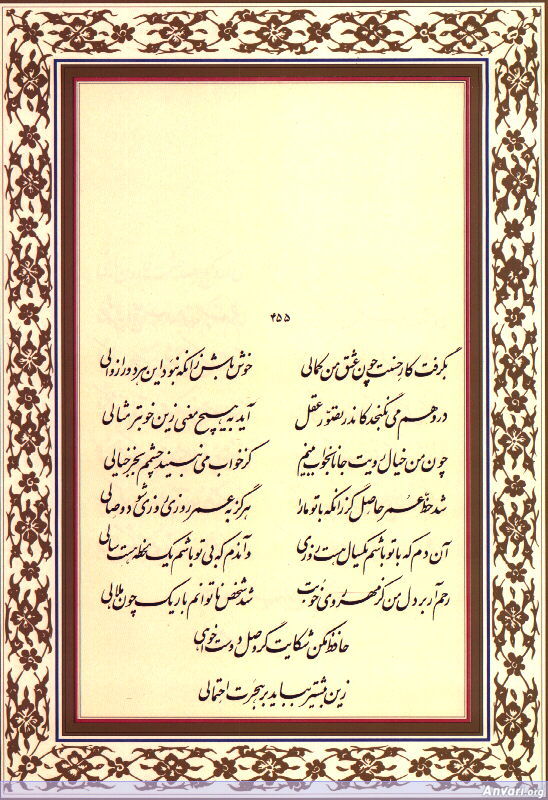 ۴۵۵
بگرفت کار حسنت چون عشق من کمالی خوش باش زانکه نبود این هر دو را زوالی
در وهم می نگنجد کاندر تصور عقل آید به هیچ معنی زین خوبتر مثالی
چون من خیال رویت جانا بخواب بینم کز خواب می نبیند چشمم بجز خیالی
شد حظ عمر حاصل گر زانکه با تو ما را هرگز به عمر روزی روزی شود وصالی
آن دم که با تو باشم یکسال هست روزی و آندم که بی تو باشم یک لحظه هست سالی
رحم آر بر دل من کز مهر روی خوبت شد شخص ناتوانم باریک چون هلالی
حافظ مکن شکایت گر وصل دوست خواهی
زین بیشتر بباید بر هجرت احتمالی
Anvari.org